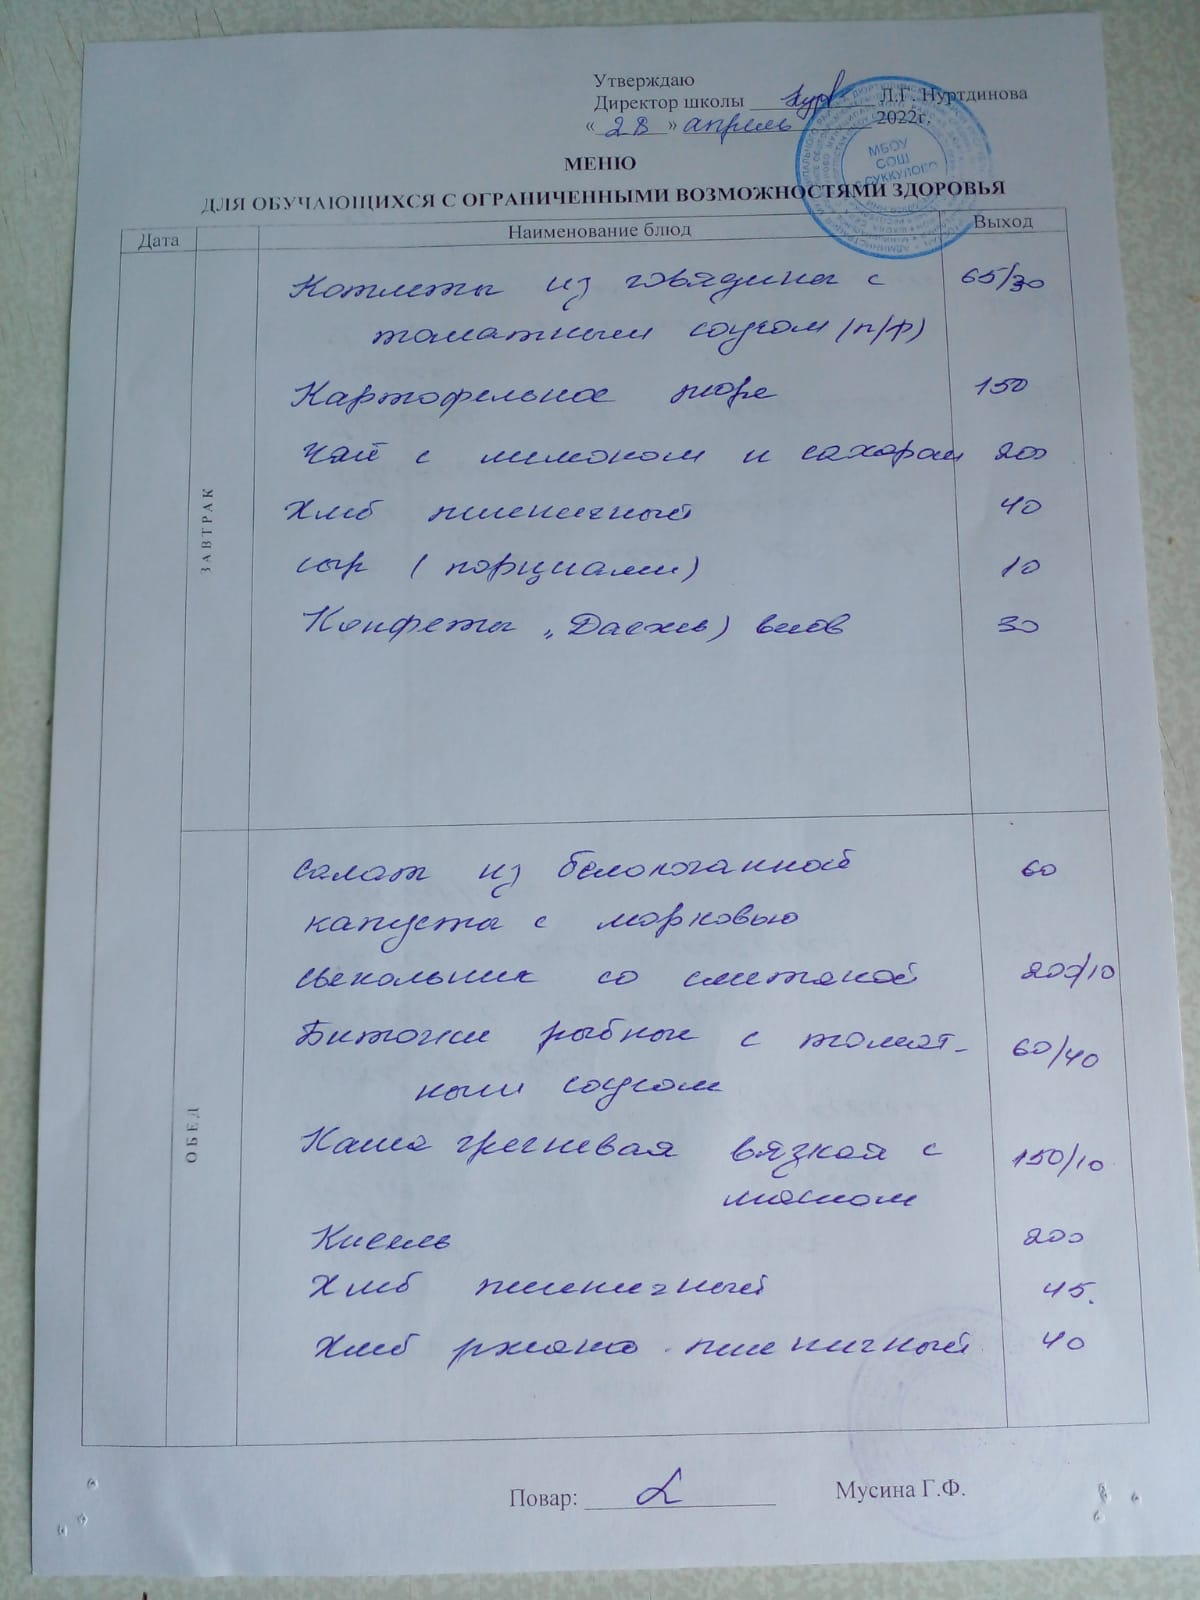 Утверждаю
Директор школы Л.Г. Нуртдинова
«28» апрель 2022г.
МБОУ
СОШ
С.СУККУЛОВО
МЕНЮ
ДЛЯ ОБУЧАЮЩИХСЯ С ОГРАНИЧЕННЫМИ ВОЗМОЖНОСТЯМИ ЗДОРОВЬЯ
Дата Наименование блюд Выход
ЗАВТРАК
Котлеты из говядины с 65/30
томатным соусом (п/ф)
Картофельное пюре 150
Чай с лимоном и сахаром 200
Хлеб пшеничный 40
сыр (порциами) 10
Конфеты 30
ОБЕД
салат из белокочанной 60
капусты с морковью
свекольник со сметаной 200/10
Биточки рыбные с томат- 60/40
ным соусом
Каша гречневая вязкой с 150/10
маслом
Кисель 200
Хлеб пшеничный 45.
Хлеб ржано-пшеничный 40
Повар: Мусина Г.Ф.